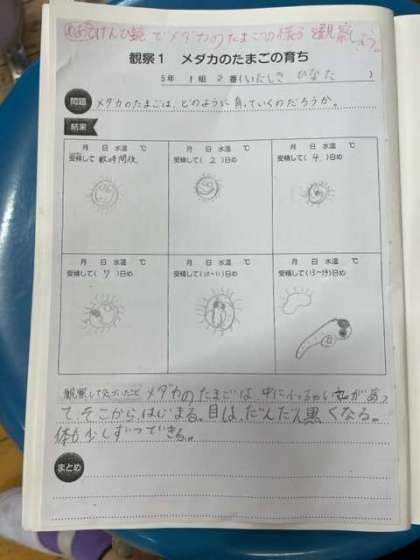 めあて けんび鏡でメダカのたまごの様子を観察しよう。
観察1 メダカのたまごの育ち
5年 1組 2番(いたしき ひなた)
問題 メダカのたまごは、どのように育っていくのだろうか。
結果
月 日 水温 ℃ 月 日 水温 ℃ 月 日 水温 ℃
受精して 数時間後 受精して(2)日め 受精して(4)日め
月 日 水温 ℃ 月 日 水温 ℃ 月 日 水温 ℃
受精して(7)日め 受精して(10~11)日め 受精して(13~19)日め
観察して メダカのたまごは、中に小っちゃい があっ
て、そこからはじまる。目は、だんだん黒くなる。
体も少しずつできる。
まとめ